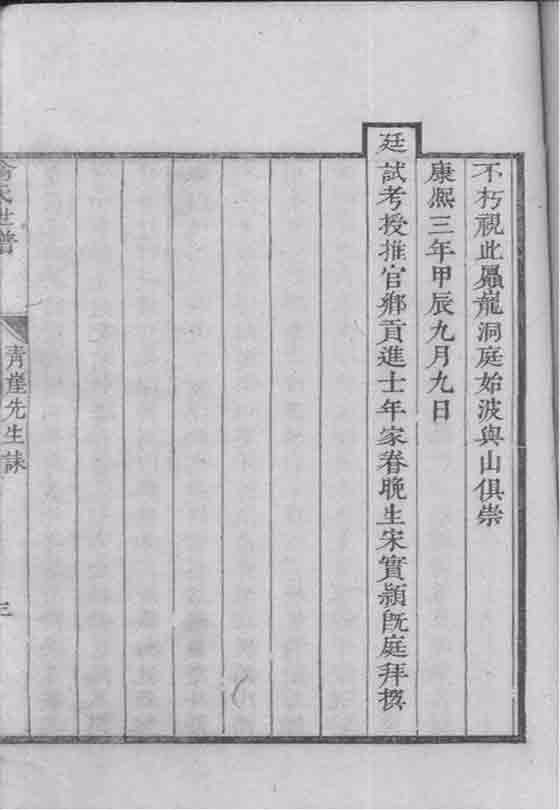 不朽視此贔龍洞庭始波與山俱崇
康熙三年甲辰九月九日
廷試考授推官鄉貢進士年家眷晚生宋實穎旣庭拜撰
氏世譜
青崖先生誄
三